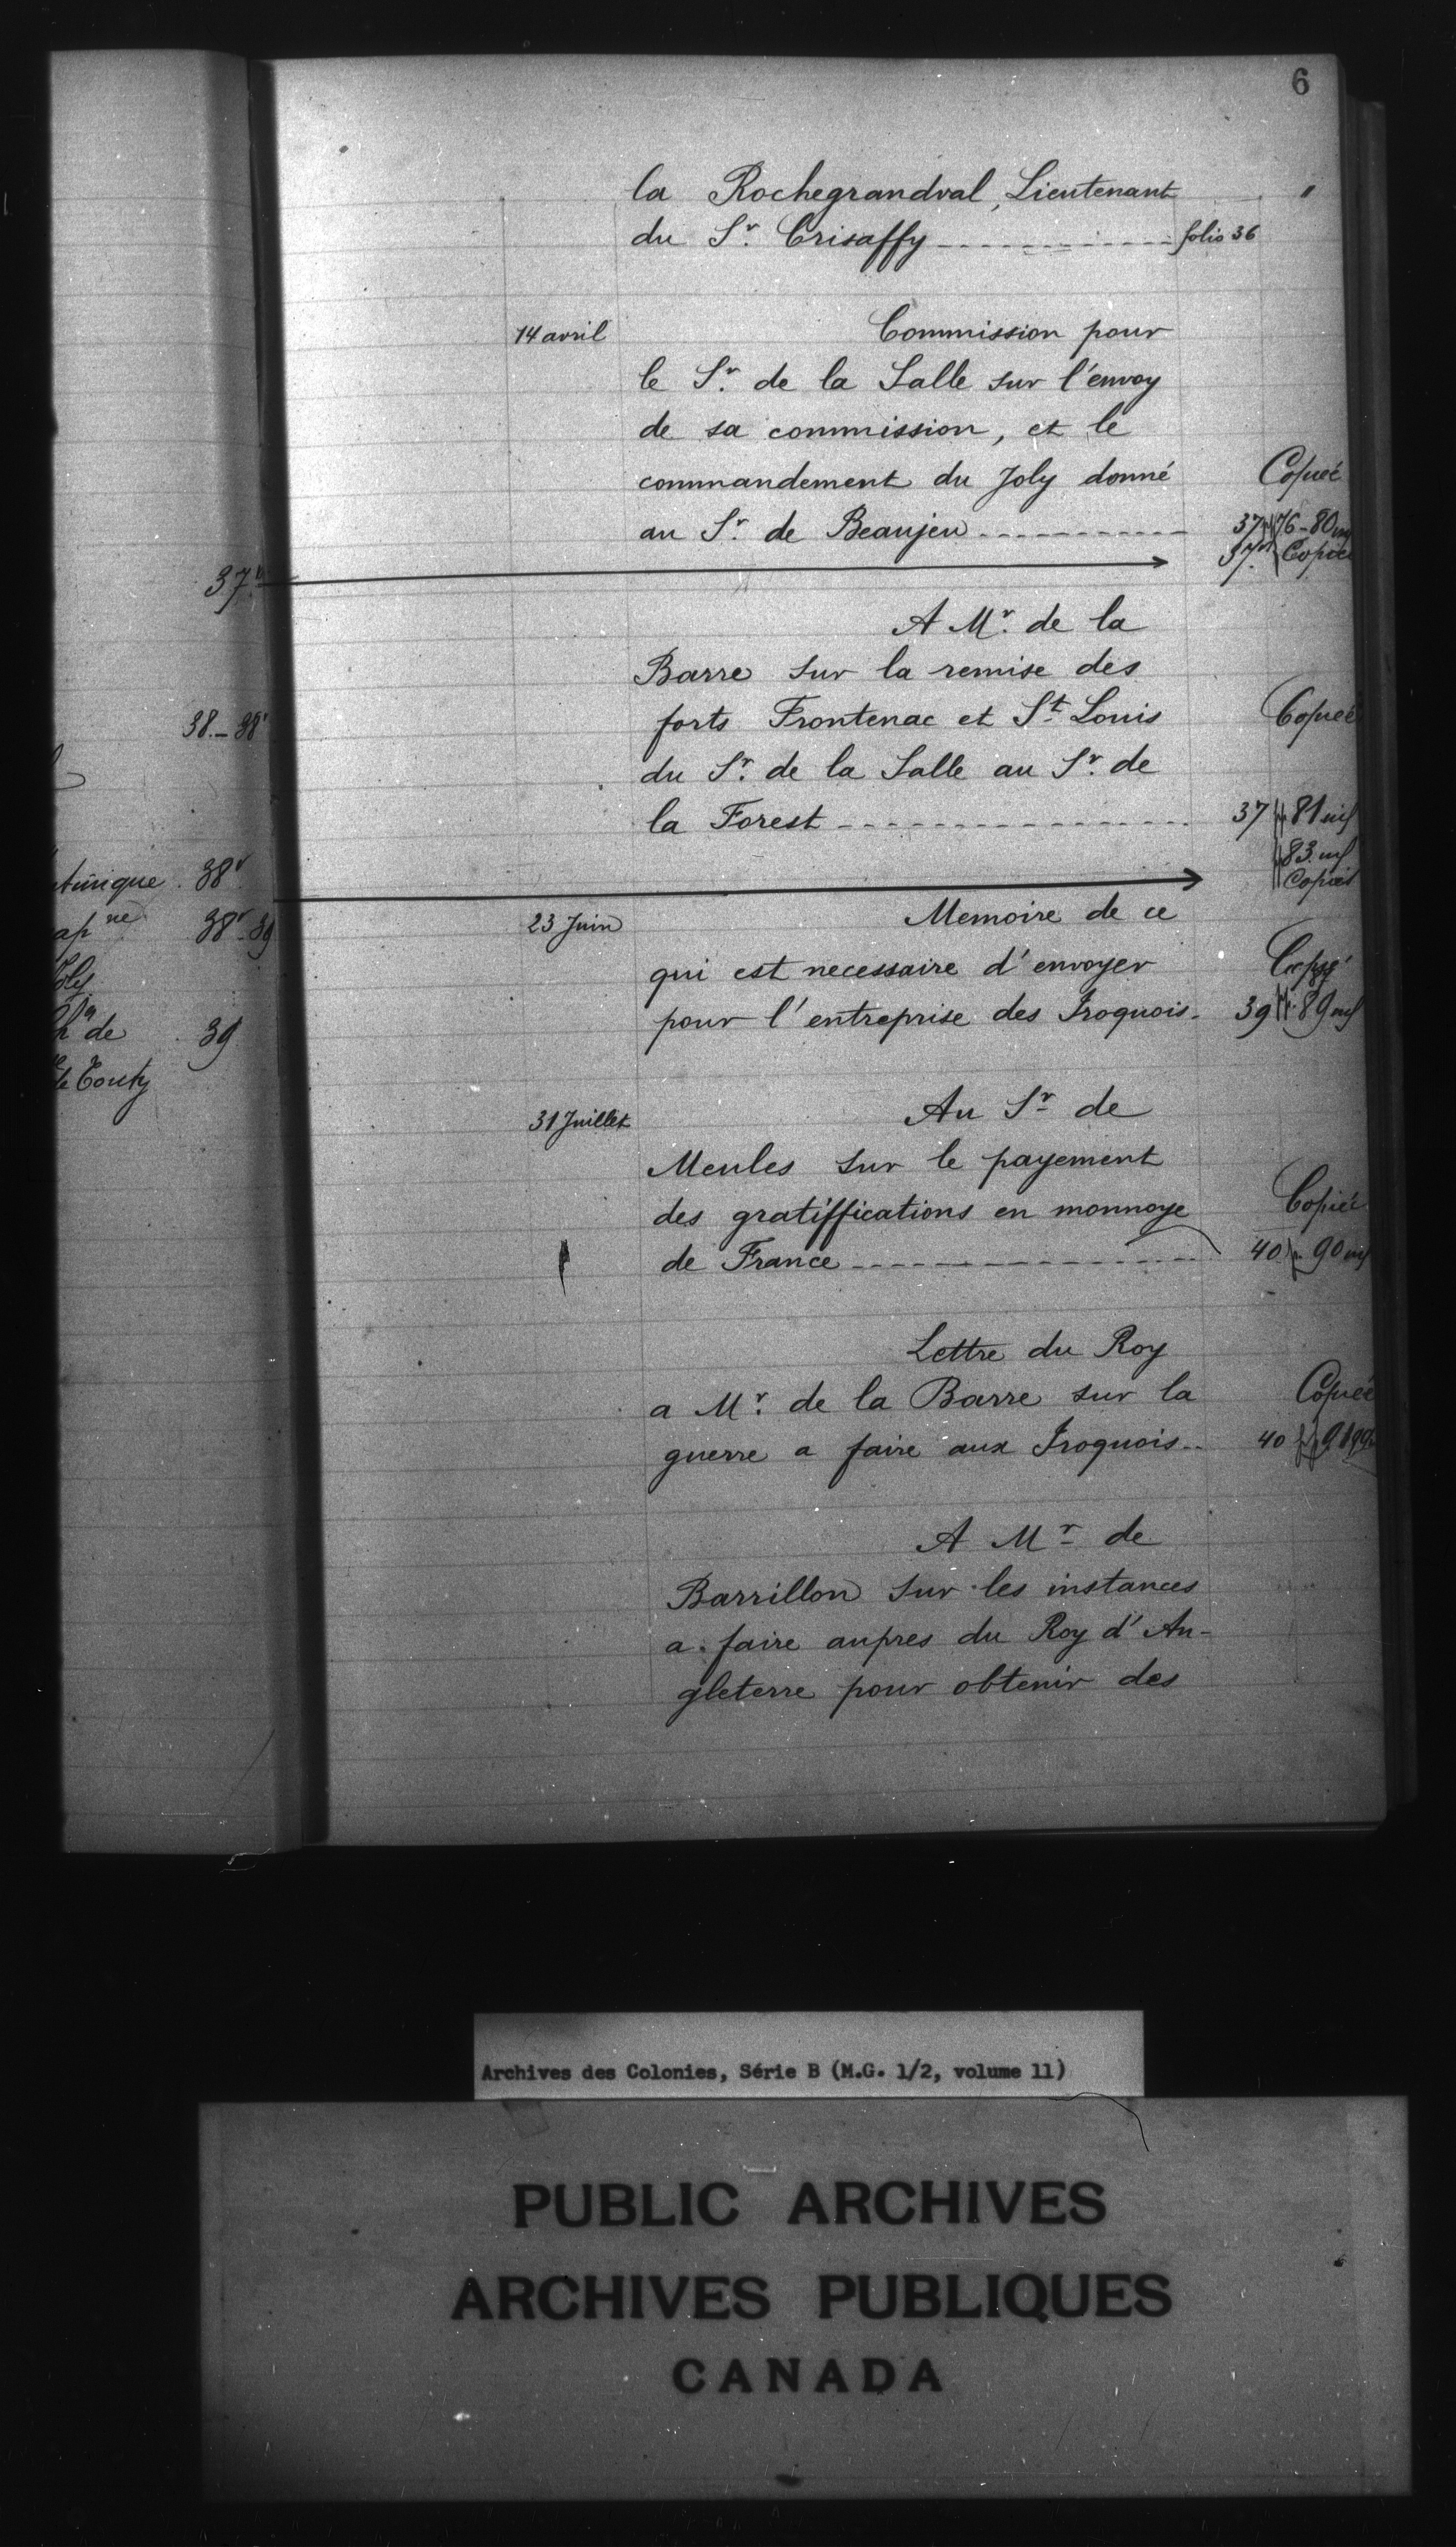 6
la Rochegrandval, Lieutenant "
du Sr. Crisaffy folio 36
14 avril Commission pour
le Sr. de la Salle sur l'envoy
de sa commission, et le
commandement du Joly donné Copiée
au Sr. de Beaujeu 37 76-80
37 Copiée
A Mr. de la
Barre sur la remise des
forts Frontenac et St. Louis Copiée
du Sr. de la Salle au Sr. de
la Forest 37 81
83
Copiée
23 Juin Memoire de ce
qui est necessaire d'envoyer Copié
pour l'entreprise des Iroquois. 39 89
31 Juillet Au Sr. de
Meules sur le payement
des gratiffications en monnoye Copiée
de France 40 90
Lettre du Roy
a Mr. de la Barre sur la Copiée
guerre a faire aux Iroquois 40
A Mr. de
Barrillon sur les instances
a faire aupres du Roy d'An-
gleterre pour obtenir des
37v
38.-38v
38v
38v-39
de 39
de Tonty
Archives des Colonies, Série B (M.G. 1/2, volume 11)
PUBLIC ARCHIVES
ARCHIVES PUBLIQUES
CANADA